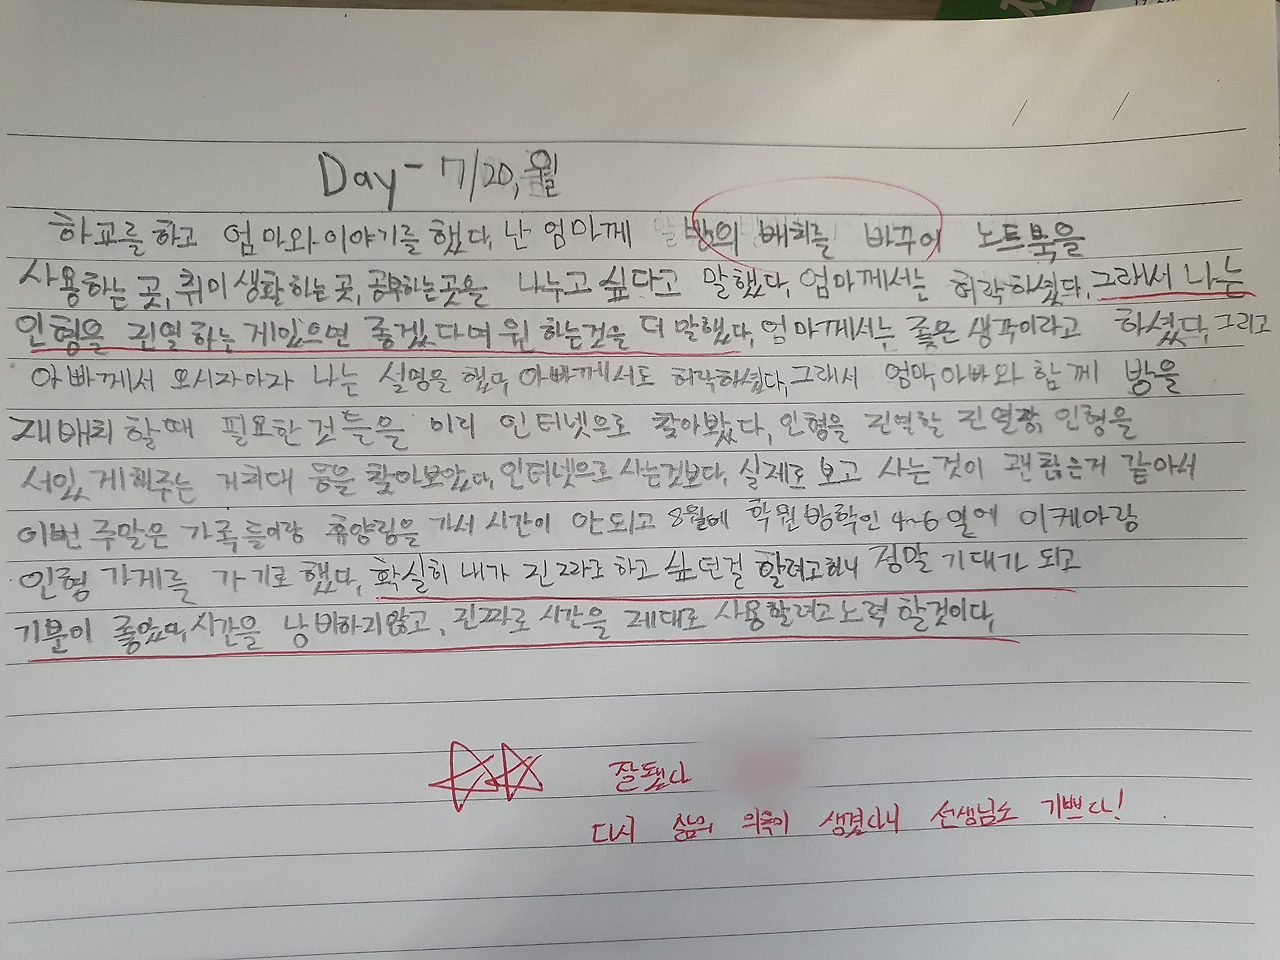 Day - 7/20, 월
하교를 하고 엄마와 이야기를 했다, 난 엄마께 방의 배치를 바꾸어 노트북을
사용하는 곳, 취미 생활 하는 곳, 공부하는 곳을 나누고 싶다고 말했다, 엄마께서는 허락하셨다, 그래서 나는
인형을 진열 하는 게있으면 좋겠다며 원 하는것을 더 말했다, 엄마께서는 좋은 생각이라고 하셨다, 그리고
아빠께서 오시자마자 나는 설명을 했고 아빠께서도 허락하셨다, 그래서 엄마 아빠와 함께 방을
재배치 할때 필요한 것 들을 미리 인터넷으로 찾아봤다, 인형을 진열할 진열장, 인형을
서있 게해주는 거치대 등을 찾아보았다, 인터넷으로 사는것보다, 실제로 보고 사는 것이 괜찮은거 같아서
이번 주말은 가족 들이랑 휴양림을 가서 시간이 안되고 8월에 학원 방학인 4~6 일에 이케아랑
인형 가게를 가기로 했다, 확실히 내가 진짜로 하고 싶던걸 할려고하니 정말 기대가 되고
기분이 좋았다, 시간을 낭비하지않고, 진짜로 시간을 제대로 사용할려고 노력 할것이다,
잘됐다
다시 삶의 의욕이 생겼다니 선생님도 기쁘다!